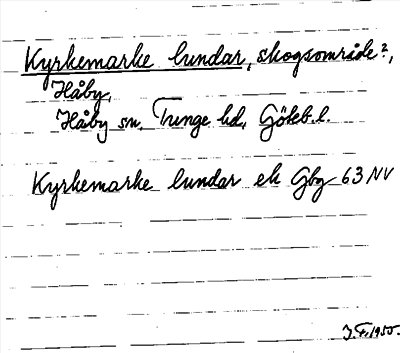 Kyrkemarke lundar, skogsområde?,
Håby,
Håby sn. Tunge hd, Göteb. l.
Kyrkemarke lundar ek Gbg 63 NV
J.F. 1950.